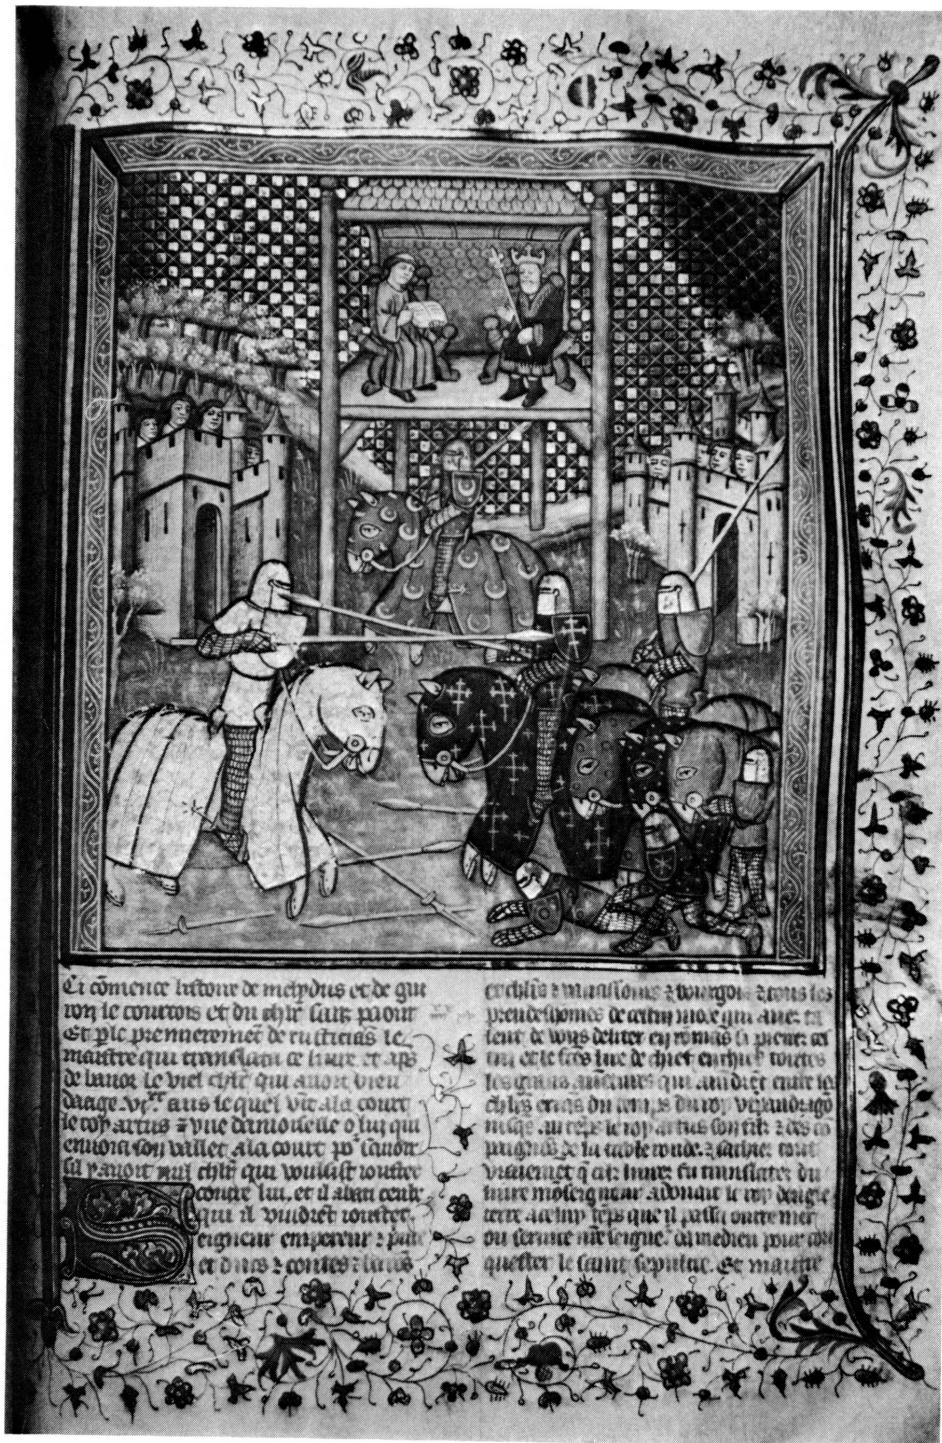 Ci cōmence listoire de meliydus et de gui
ron le courtois et du chlr̄ sanz paour
Et ple premierement̄ de rusticias le
maistre qui translata ce liure et aps
de banor le viel chlr̄ qui auoit bien
daage .vi.xx ans le quel vīt ala court
le roy artus z vne demoiselle o lui qui
enuoia son vallet ala court po.r sauoir
sil y auoit nul chlr̄ qui voulsist iouster
contre lui. et il abati ceulx
qui il vindrēt iouster
Seigneur empereur z
et ducs z contes z barōs
z vauassours z bourgois z tous les
preudespōmes de cestui mōde qui auez ta
lent de vous deliter en rōmās si prenez ces
tui et le fēs lire de chief en chief toutes
les grans auētures qui auidrēt entre les
chlrs errās du temps du roy vterpandrago
nusqz au tēps le roy artus son filz z des cō
paignōs de la table ronde. z sachiez tout
vraiemēt q̄ cist liures fu translatez du
liure mōseigneur adouart le roy dengle
terre a celluy tēps que il passa oultre mer
ou seruice nr̄e seigne.r damedieu pour con
quester le saint sepulcre. Et maistre